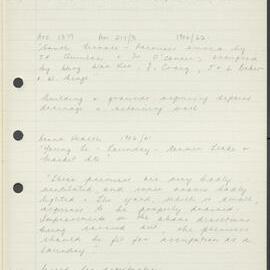 Acc 1879 Box 211/8 1906/62
"South Terrace - Premises owned by
T.A. & Dr. O'Connor, occupied
by Wong Wah Kee, E. Craig, T & L Baker
& W.
Building & grounds requiring repairs
drainage & retaining wall
Board Health 1906/61
"Young Le - Laundry - corner Leake &
Market Sts
"These premises are very badly
ventilated, and some rooms badly
lighted. The yard, which is small,
requires to be properly drained.
Improvements in the above directions
being carried out, the premises
should be fit for occupation as a
laundry."